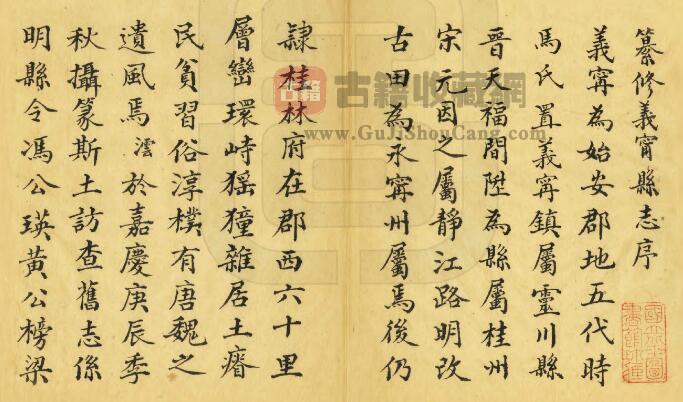 纂修義寧縣志序
義寧為始安郡地五代時
馬氏置義寧鎮屬靈川縣
晉天福間陞為縣屬桂州
宋元因之屬靜江路明改
古田為永寧州屬焉後仍
隸桂林府在郡西六十里
層巒環峙猺獞雜居土瘠
民貧習俗淳樸有唐魏之
遺風焉澐於嘉慶庚辰季
秋攝篆斯土訪查舊志係
明縣令馮公瑛黃公榜梁
古籍收藏網
www.GuJiShouCang.com
古籍